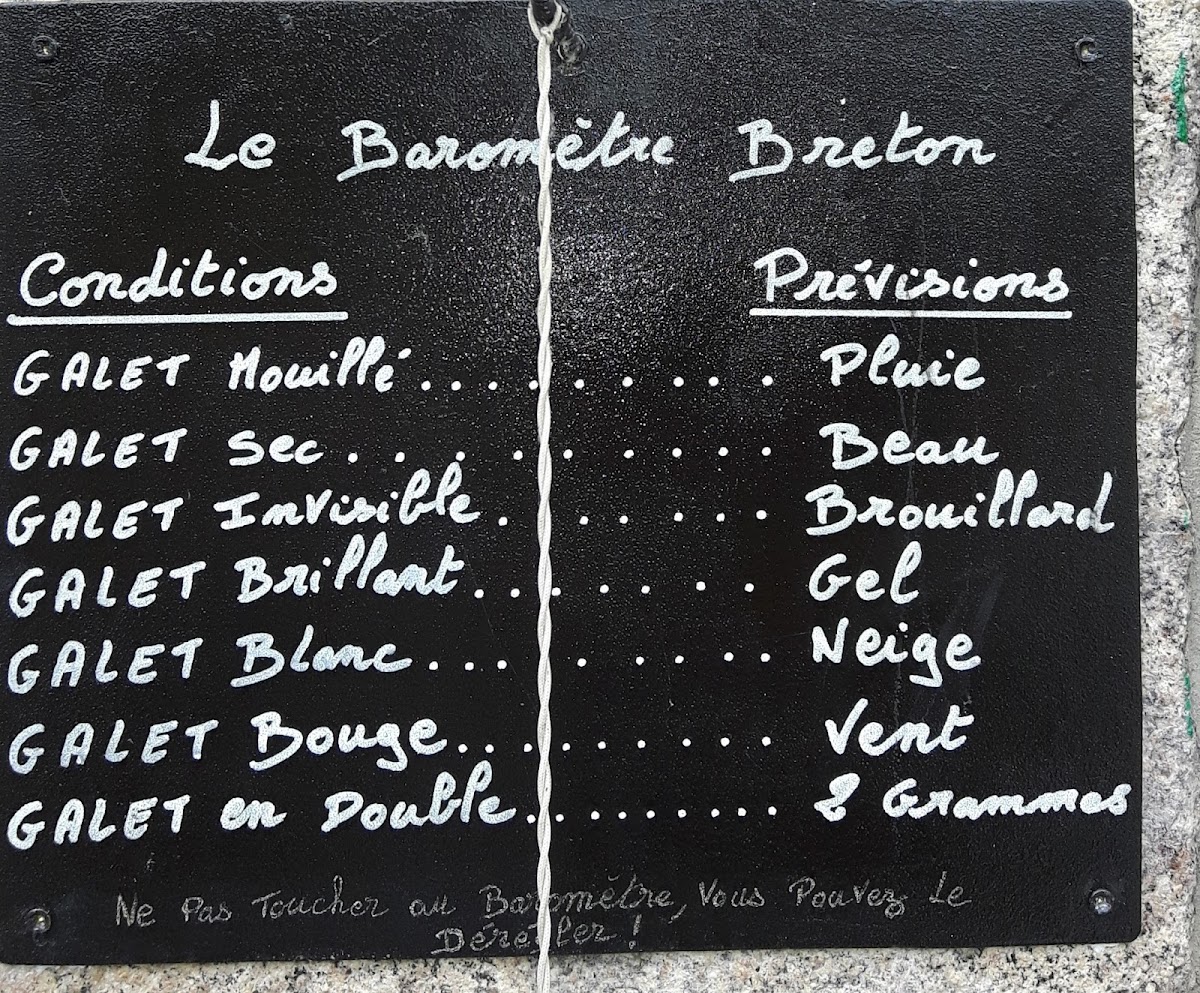 Le Baromètre Breton
Conditions Prévisions
GALET Mouillé.......... Pluie
GALET Sec......... Beau
GALET Invisible....... Brouillard
GALET Brillant....... Gel
GALET Blanc........ Neige
GALET Bouge.......... Vent
GALET en Double.......... 2 Grammes
Ne Pas Toucher au Baromètre, Vous Pouvez Le
Dérégler !